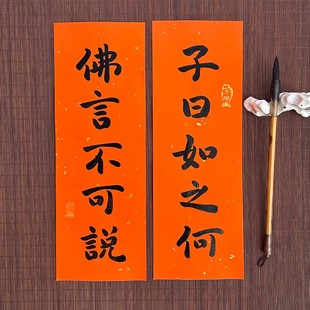 子曰如之何
佛言不可説